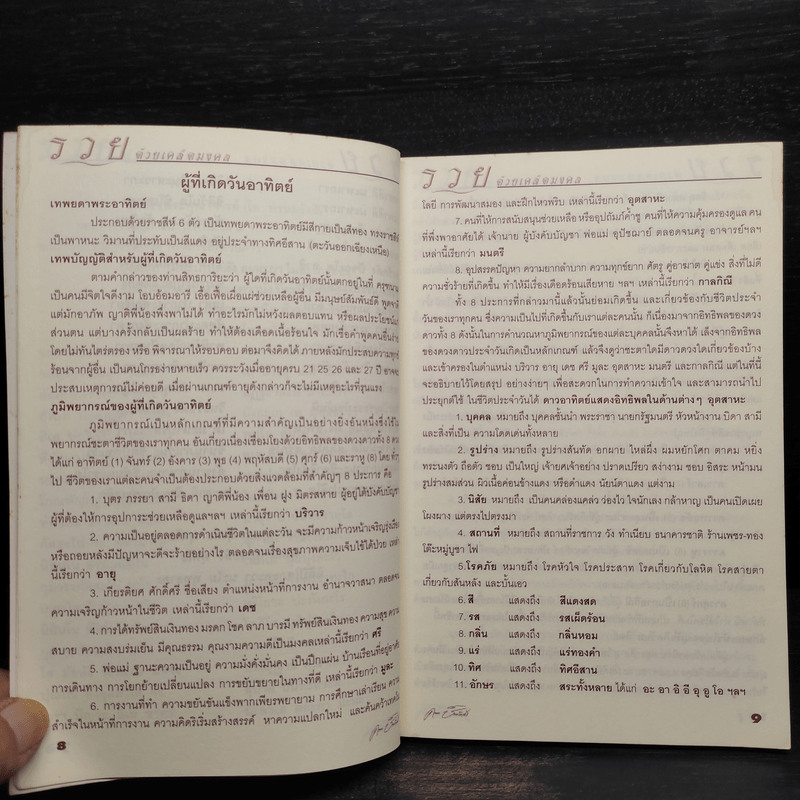 รวย ด้วยเคล็ดมงคล
ผู้ที่เกิดวันอาทิตย์
เทพยดาพระอาทิตย์
ประกอบด้วยราชสีห์ 6 ตัว เป็นเทพยดาพระอาทิตย์มีสีกายเป็นสีทอง ทรงราชสีห์
เป็นพาหนะ วิมานที่ประทับเป็นสีแดง อยู่ประจำทางทิศอีสาน (ตะวันออกเฉียงเหนือ)
เทพบัญญัติสำหรับผู้ที่เกิดวันอาทิตย์
ตามคำกล่าวของท่านสิทธการิยะว่า ผู้ใดที่เกิดวันอาทิตย์นั้นตกอยู่ในที่
เป็นคนมีจิตใจดีงาม โอบอ้อมอารี เอื้อเฟื้อเผื่อแผ่ช่วยเหลือผู้อื่น มีมนุษย์สัมพันธ์ดี
แต่มักอาภัพ ญาติพี่น้องพึ่งพาไม่ได้ ทำอะไรมักไม่หวังผลตอบแทน หรือผลประโยชน์
ส่วนตน แต่บางครั้งกลับเป็นผลร้าย ทำให้ต้องเดือดเนื้อร้อนใจ มักเชื่อคำพูดคนอื่น
โดยไม่ทันไตร่ตรอง หรือ พิจารณาให้รอบคอบ ต่อมาจึงคิดได้ ภายหลังมักประสบความทุกข์
ร้อนจากผู้อื่น เป็นคนโกรธง่ายหายเร็ว ควรระวังเมื่ออายุครบ 21 25 26 และ 27 ปี อาจ
ประสบเหตุการณ์ไม่ค่อยดี เมื่อผ่านเกณฑ์อายุดังกล่าวก็จะไม่มีเหตุอะไรที่รุนแรง
ภูมิพยากรณ์ของผู้ที่เกิดวันอาทิตย์
ภูมิพยากรณ์เป็นหลักเกณฑ์ที่มีความสำคัญเป็นอย่างยิ่งอันหนึ่งซึ่งใช้ใน
พยากรณ์ชะตาชีวิตของเราทุกคน อันเกี่ยวเนื่องเชื่อมโยงด้วยอิทธิพลของดวงดาวทั้ง 8
ได้แก่ อาทิตย์ (1) จันทร์ (2) อังคาร (3) พุธ (4) พฤหัสบดี (5) ศุกร์ (6) และราหู (8) โดย
ไป ชีวิตของเราแต่ละคนจำเป็นต้องประกอบด้วยสิ่งแวดล้อมที่สำคัญๆ 8 ประการ คือ
1. บุตร ภรรยา สามี ธิดา ญาติพี่น้อง เพื่อน ฝูง มิตรสหาย ผู้อยู่ใต้บังคับบัญชา
ผู้ที่ต้องให้การอุปการะช่วยเหลือดูแลฯลฯ เหล่านี้เรียกว่า บริวาร
2. ความเป็นอยู่ตลอดการดำเนินชีวิตในแต่ละวัน จะมีความก้าวหน้าเจริญรุ่งเรือง
หรือถอยหลังมีปัญหาจะดีจะร้ายอย่างไร ตลอดจนเรื่องสุขภาพความเจ็บไข้ได้ป่วย
นี้เรียกว่า อายุ
3. เกียรติยศ ศักดิ์ศรี ชื่อเสียง ตำแหน่งหน้าที่การงาน อำนาจวาสนา ตลอดจน
ความเจริญก้าวหน้าในชีวิต เหล่านี้เรียกว่า เดช
4. การได้ทรัพย์สินเงินทอง มรดก โชค ลาภ บารมี ทรัพย์สินเงินทอง ความสุข ความ
สบาย ความสงบร่มเย็น มีคุณธรรม คุณงามความดีเป็นมงคลเหล่านี้เรียกว่า ศรี
5. พ่อแม่ ฐานะความเป็นอยู่ ความมั่งคั่งมั่นคง เป็นปึกแผ่น บ้านเรือนที่อยู่อาศัย
การเดินทาง การโยกย้ายเปลี่ยนแปลง การขยับขยายในทางที่ดี เหล่านี้เรียกว่า มูละ
6. การงานที่ทำ ความขยันขันแข็งพากเพียรพยายาม การศึกษาเล่าเรียน ความ
สำเร็จในหน้าที่การงาน ความคิดริเริ่มสร้างสรรค์ หาความแปลกใหม่ และค้นคว้าเทคโน
8
รวย ด้วยเคล็ดมงคล
โลยี การพัฒนาสมอง และฝึกไหวพริบ เหล่านี้เรียกว่า อุตสาหะ
7. คนที่ให้การสนับสนุนช่วยเหลือ หรืออุปถัมภ์ค้ำชู คนที่ให้ความคุ้มครองดูแล คน
ที่พึ่งพาอาศัยได้ เจ้านาย ผู้บังคับบัญชา พ่อแม่ อุปัชฌาย์ ตลอดจนครู อาจารย์ฯลฯ
เหล่านี้เรียกว่า มนตรี
8. อุปสรรคปัญหา ความยากลำบาก ความทุกข์ยาก ศัตรู คู่อาฆาต คู่แข่ง สิ่งที่ไม่ดี
ความชั่วร้ายที่เกิดขึ้น ทำให้มีเรื่องเดือดร้อนเสียหาย ฯลฯ เหล่านี้เรียกว่า กาลกิณี
ทั้ง 8 ประการที่กล่าวมานี้แล้วนั้นย่อมเกิดขึ้น และเกี่ยวข้องกับชีวิตประจำ
วันของเราทุกคน ซึ่งความเป็นไปที่เกิดขึ้นกับเราแต่ละคนนั้น ก็เนื่องมาจากอิทธิพลของดวง
ดาวทั้ง 8 ดังนั้นในการคำนวณหาภูมิพยากรณ์ของแต่ละบุคคลนั้นจึงหาได้ เล็งจากอิทธิพล
ของดวงดาวประจำวันเกิดเป็นหลักเกณฑ์ แล้วจึงดูว่าชะตาใดมีดาวดวงใดเกี่ยวข้องบ้าง
และเข้าครองในตำแหน่ง บริวาร อายุ เดช ศรี มูละ อุตสาหะ มนตรี และกาลกิณี แต่ในที่นี้
จะอธิบายไว้โดยสรุป อย่างง่ายๆ เพื่อสะดวกในการทำความเข้าใจ และสามารถนำไป
ประยุกต์ใช้ ในชีวิตประจำวันได้ ดาวอาทิตย์แสดงอิทธิพลในด้านต่างๆ อุตสาหะ
1. บุคคล หมายถึง บุคคลชั้นนำ พระราชา นายกรัฐมนตรี หัวหน้างาน บิดา สามี
และสิ่งที่เป็น ความโดดเด่นทั้งหลาย
2. รูปร่าง หมายถึง รูปร่างสันทัด อกผาย ไหล่ผึ่ง ผมหยักโศก ตาคม หยิ่ง
ทระนงตัว ถือตัว ชอบ เป็นใหญ่ เจ้ายศเจ้าอย่าง ปราดเปรียว สง่างาม ชอบ อิสระ หน้ามน
รูปร่างสมส่วน ผิวเนื้อค่อนข้างแดง หรือดำแดง นัยน์ตาแดง แต่งาม
3. นิสัย หมายถึง เป็นคนคล่องแคล่ว ว่องไว ใจนักเลง กล้าหาญ เป็นคนเปิดเผย
โผงผาง แต่ตรงไปตรงมา
4. สถานที่ หมายถึง สถานที่ราชการ วัง ทำเนียบ ธนาคารชาติ ร้านเพชร-ทอง
โต๊ะหมู่บูชา ไฟ
5.โรคภัย หมายถึง โรคหัวใจ โรคประสาท โรคเกี่ยวกับโลหิต โรคสายตา
เกี่ยวกับสันหลัง และบั้นเอว
6. สี แสดงถึง สีแดงสด
7. รส แสดงถึง รสเผ็ดร้อน
8. กลิ่น แสดงถึง กลิ่นหอม
9. แร่ แสดงถึง แร่ทองคำ
10. ทิศ แสดงถึง ทิศอีสาน
11. อักษร แสดงถึง สระทั้งหลาย ได้แก่ อะ อา อิ อี อุ อู โอ ฯลฯ
9